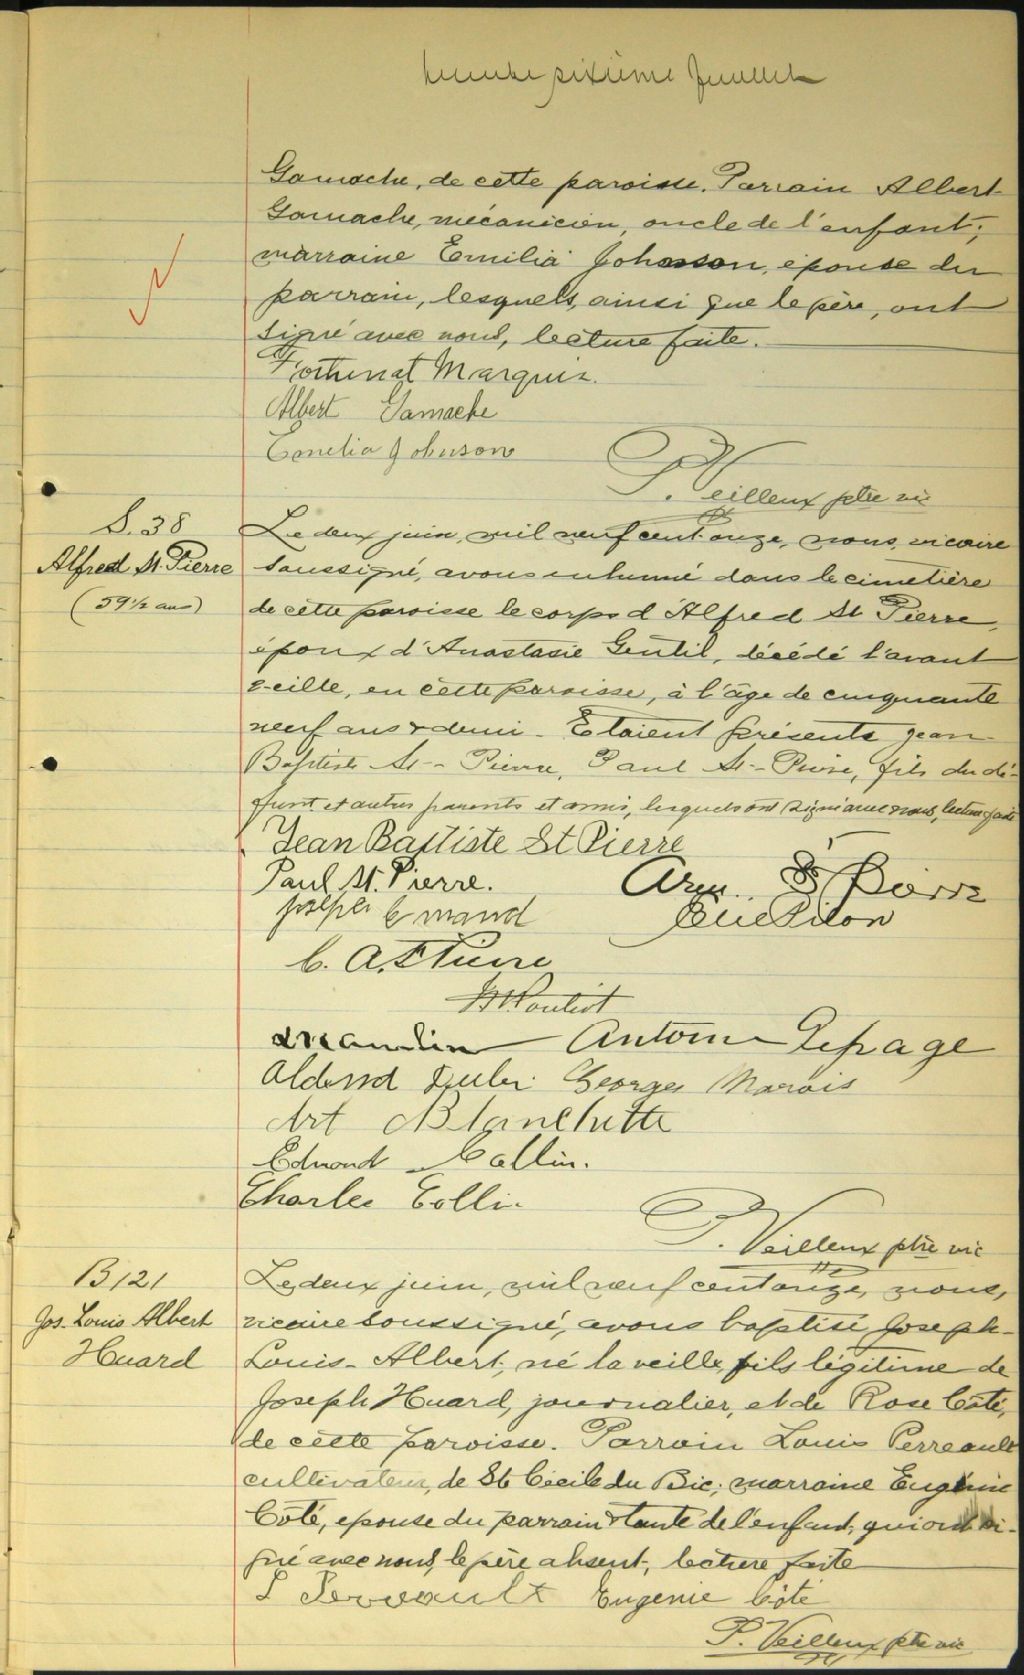 trente sixième feuillet
Gamache, de cette paroisse. Parrain Albert
Gamache, mécanicien, oncle de l'enfant;
marraine Emilia Johnson, épouse du
parrain, lesquels, ainsi que le père, ont
signé avec nous, lecture faite.
Fortunat Marquis.
Albert Gamache
Emelia Johnson
P. Veilleux ptre vic
S. 38
Alfred St. Pierre
(59 1/2 ans)
Le deux juin, mil neuf cent onze, nous, vicaire
soussigné, avons inhumé dans le cimetière
de cette paroisse le corps d'Alfred St Pierre,
époux d'Anastasie Gentil, décédé l'avant
veille, en cette paroisse, à l'âge de cinquante
neuf ans & demi. Etaient présents Jean
Baptiste St-Pierre, Paul St-Pierre, fils du dé-
funt et autres parents et amis, lesquels ont signé avec nous, lecture faite
Jean Baptiste St Pierre
Paul St. Pierre.
St Pierre
Joseph
Elie Pilon
C. A. St Pierre
Pouliot
Antoine Lepage
Georges Marois
Art Blanchette
Edmond Collin.
Charles Collin
P. Veilleux ptre vic
B 121
Jos. Louis Albert
Huard
Le deux juin, mil neuf cent onze, nous,
vicaire soussigné, avons baptisé Joseph-
Louis-Albert, né la veille, fils légitime de
Joseph Huard, journalier, et de Rose Côté,
de cette paroisse. Parrain Louis Perreault
cultivateur, de Ste Cécile du Bic; marraine Eugénie
Côté, epouse du parrain & tante de l'enfant, qui ont si-
gné avec nous, le père absent, lecture faite
L Perreault Eugenie Côté
P. Veilleux ptre vic